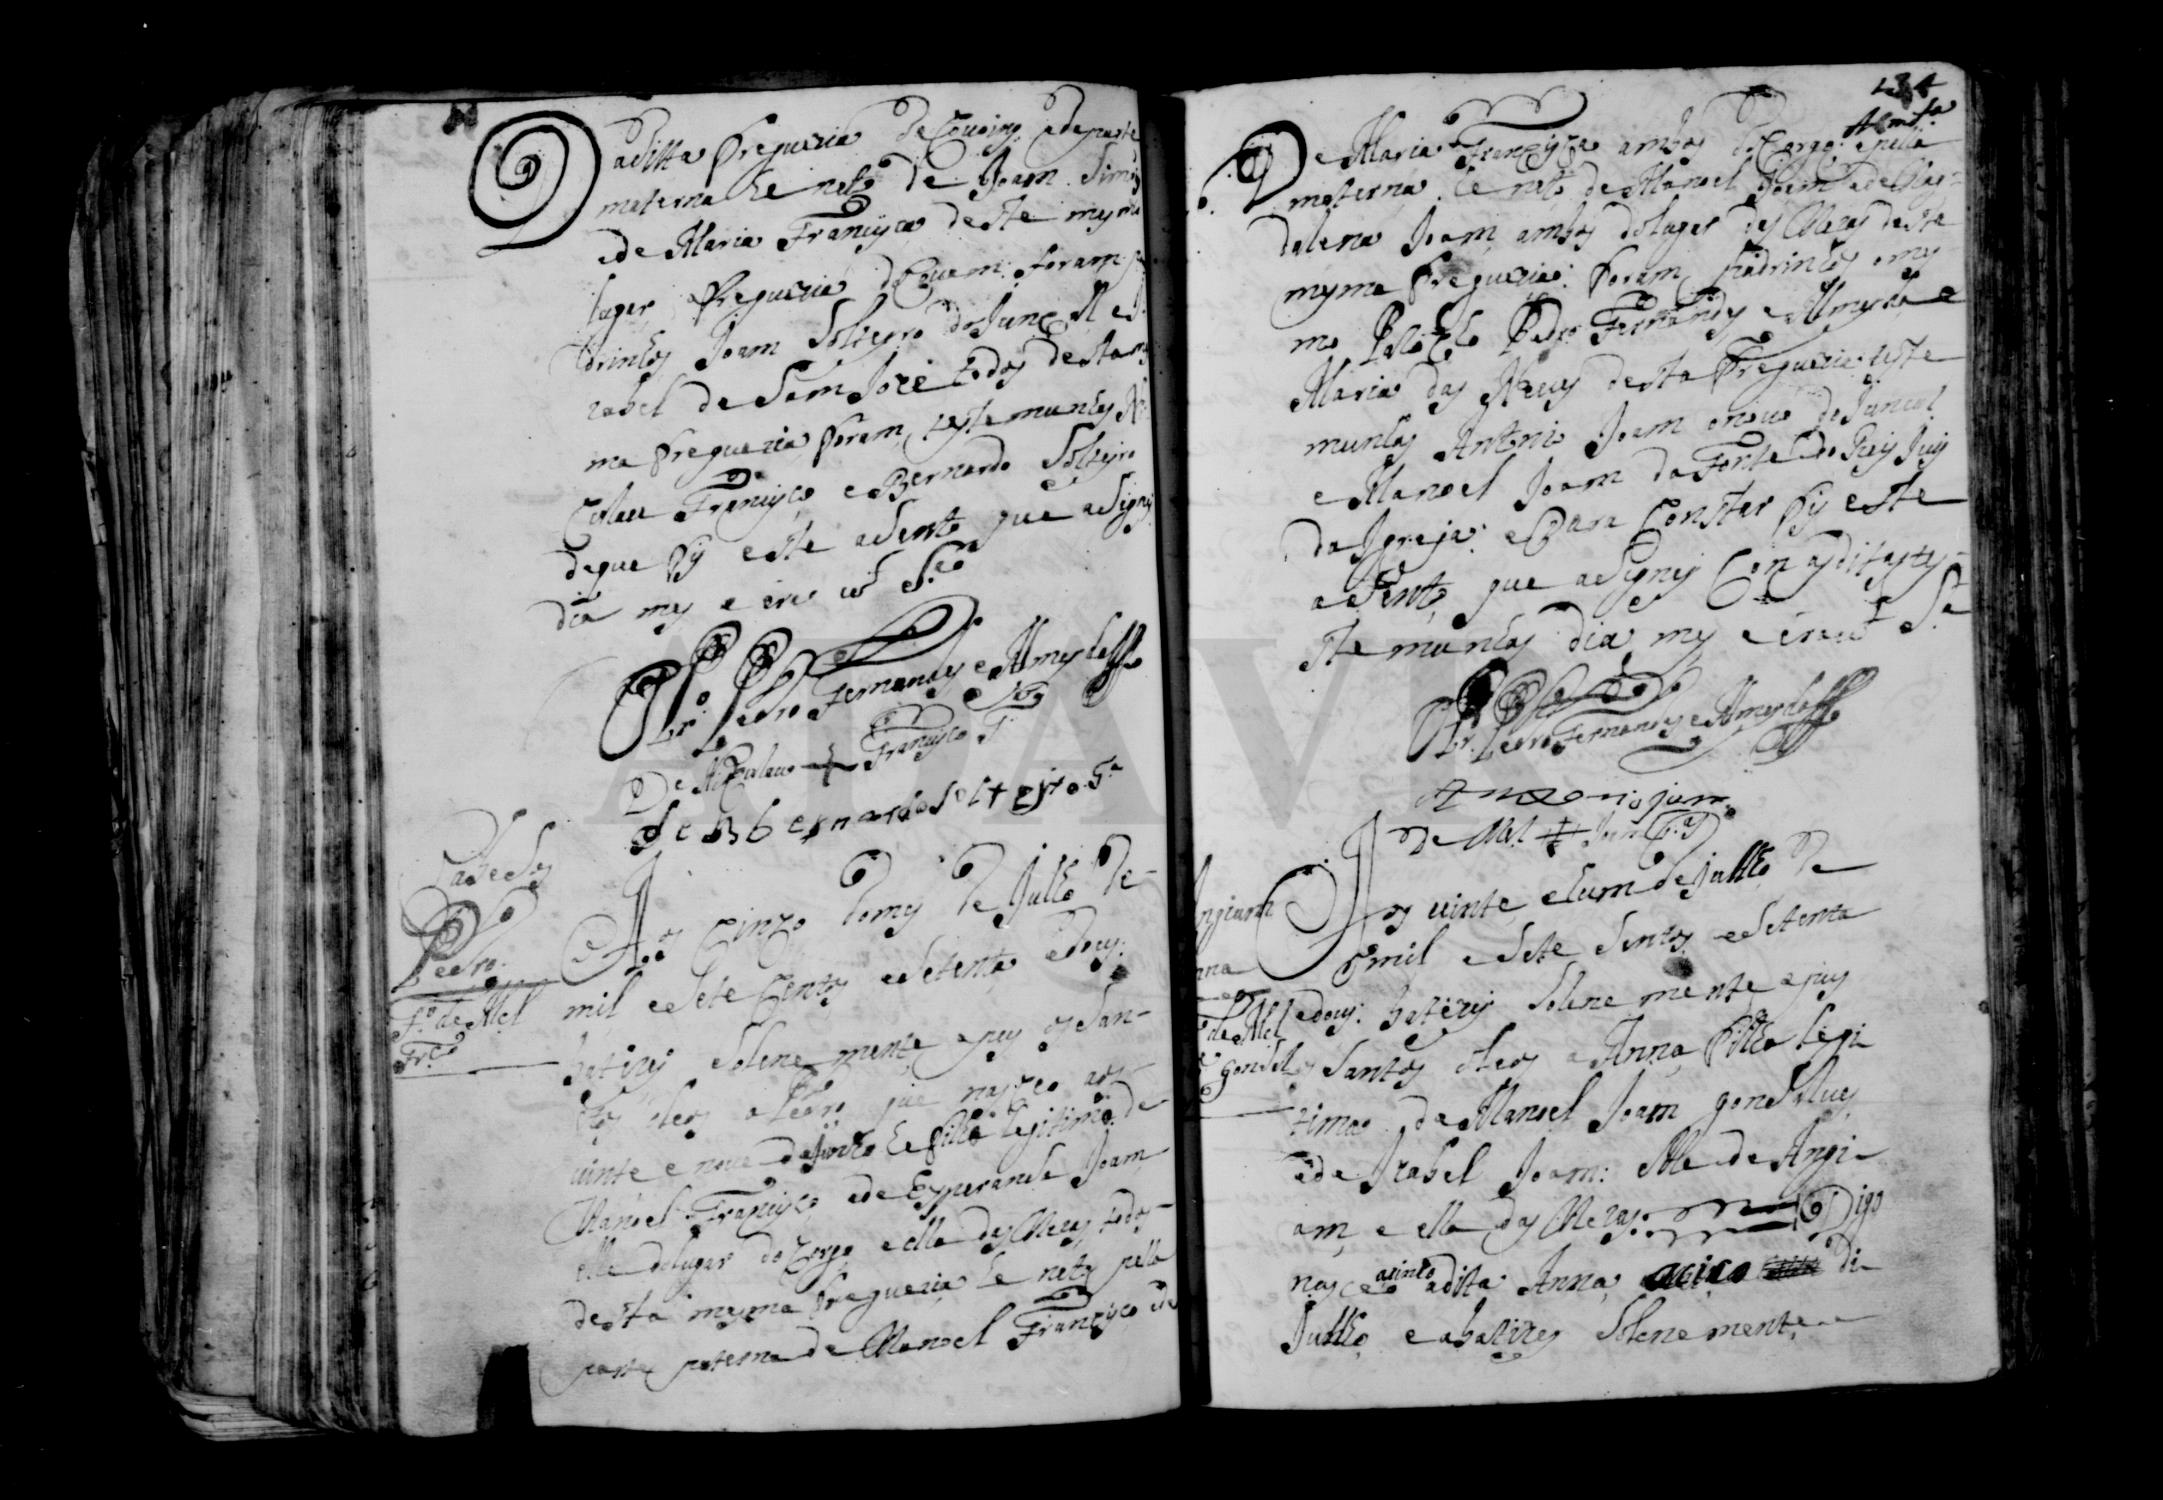 Da ditta Freguezia de Couoins, e de parte
materna he neto de Joam Simois
e de Maria Francisca deste mysmo
lugar e Freguezia do Couam: foram pa
drinhos Joam Solteyro do Juncal e I
zabel de Sam Jozé todos desta mys
ma Freguezia, foram testemunhas Ni
Colau Francisco e Bernardo Solteyro
de que fis este asento que asigney
dia mes e era ut sª
O Pr. Pedro Fernandes e Almeyda
De Nicolau + Francisco Tª
de Bernardo Solteyro Tª
Pedro
Fº. de Mel
Frco
Aos Cinco do mes de Julho de
mil e sete Centos e setenta e Dous:
batizei Solene mente, e pus os San-
tos oleos a Pedro que nasceo aos
uinte e noue de Junho he filho legitimo de
Manoel Francisco, e de Esperansa Joam
elle do lugar do Corgo, e ella das Mezas todos
desta mesma Freguezia he neto pella
parte paterna de Manoel Francisco e de
134
Almda
De Maria Francisca ambos do Corgo: e pella
materna he neto de Manoel Joam e de Mag-
dalena Joam ambos do lugar das Mezas desta
mysma Freguezia: foram padrinhos o mes
mo Pedro Fernandes e Almeyda e
Maria das Neues desta Freguezia teste
munhas Antonio Joam o nouo do Juncal
e Manoel Joam da Fonte do Rey Juis
da Igreja: e Para Constar fis este
asento, que asigney Con as ditas tes-
te munhas dia mes e era ut Sª
O Pr. Pedro Fernandes e Almeyda
Antonio joam
De Mel + Joam Tª
Angiam
Anna
Fª de Mel
Gonsalves
Aos uinte, e hum de Julho de
mil e sete Sentos e Setenta
e dous: batizey Solene mente e pus
os Santos oleos a Anna filha legi
tima de Manoel Joam gonSalues
e de Izabel Joam: elle de Angi-
am, e ella das Mezas: Digo
nasceo a sinco a dita Anna de
Julho, e a batizey Solenemente